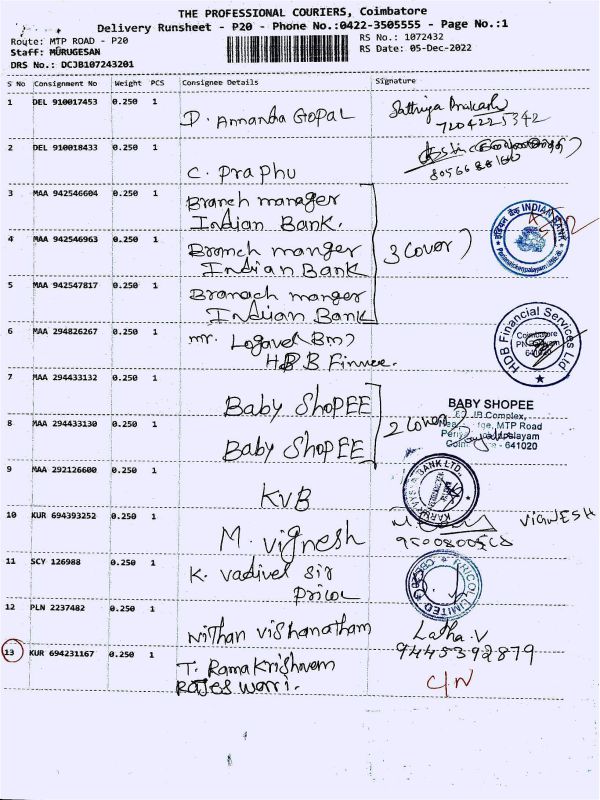 THE PROFESSIONAL COURIERS, Coimbatore
Delivery Runsheet - P20 - Phone No.:0422-3505555 - Page No.:1
Route: MTP ROAD - P20
RS No.: 1072432
Staff: MURUGESAN
RS Date: 05-Dec-2022
DRS No.: DCJB107243201
S No Consignment No Weight PCS Consignee Details Signature
1 DEL 910017453 0.250 1 D. Amanda Gopal Sathiya Prakash
7204225342
2 DEL 910018433 0.250 1 C. Praphu
3 MAA 942546604 0.250 1 Branch manager
Indian Bank.
4 MAA 942546963 0.250 1 Branch manger
Indian Bank
3 Cover)
INDIAN BANK
5 MAA 942547817 0.250 1 Branach manger
Indian Bank
6 MAA 294826267 0.250 1 mr. Logavel Bm)
HDB Finnce.
HDB Financial Services Ltd
Coimbatore
641020
7 MAA 294433132 0.250 1 Baby ShoPEE
8 MAA 294433130 0.250 1 Baby ShoPEE
2 Cover)
BABY SHOPEE
JB Complex,
MTP Road
palayam
- 641020
9 MAA 292126600 0.250 1 KVB
BANK LTD.
10 KUR 694393252 0.250 1 M. vignesh
VIGNESH
11 SCY 126988 0.250 1 K. vadivel sir
Pricol
PRICOL LIMITED
CBE-20
12 PLN 2237482 0.250 1 Nithan vishanatham Latha.V
9445392879
13 KUR 694231167 0.250 1 T. Ramakrishnam
Rajeswarri.
C/N